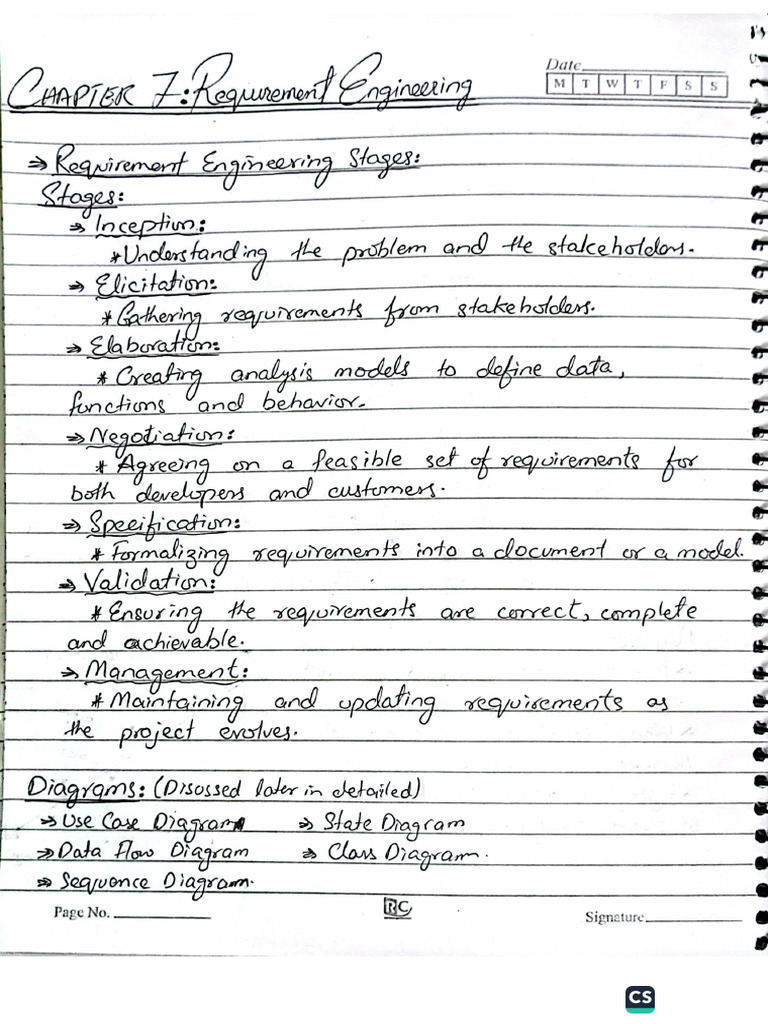 Date
CHAPTER 7: Requirement Engineering
M T W T F S S
⇒ Requirement Engineering Stages:
Stages:
⇒ Inception:
* Understanding the problem and the stakeholders.
⇒ Elicitation:
* Gathering requirements from stakeholders.
⇒ Elaboration:
* Creating analysis models to define data,
functions and behavior.
⇒ Negotiation:
* Agreeing on a feasible set of requirements for
both developers and customers.
⇒ Specification:
* Formalizing requirements into a document or a model.
⇒ Validation:
* Ensuring the requirements are correct, complete
and achievable.
⇒ Management:
* Maintaining and updating requirements as
the project evolves.
Diagrams: (Disossed later in detailed)
⇒ Use Case Diagram ⇒ State Diagram
⇒ Data Flow Diagram ⇒ Class Diagram.
⇒ Sequence Diagram.
Page No. RC Signature
CS